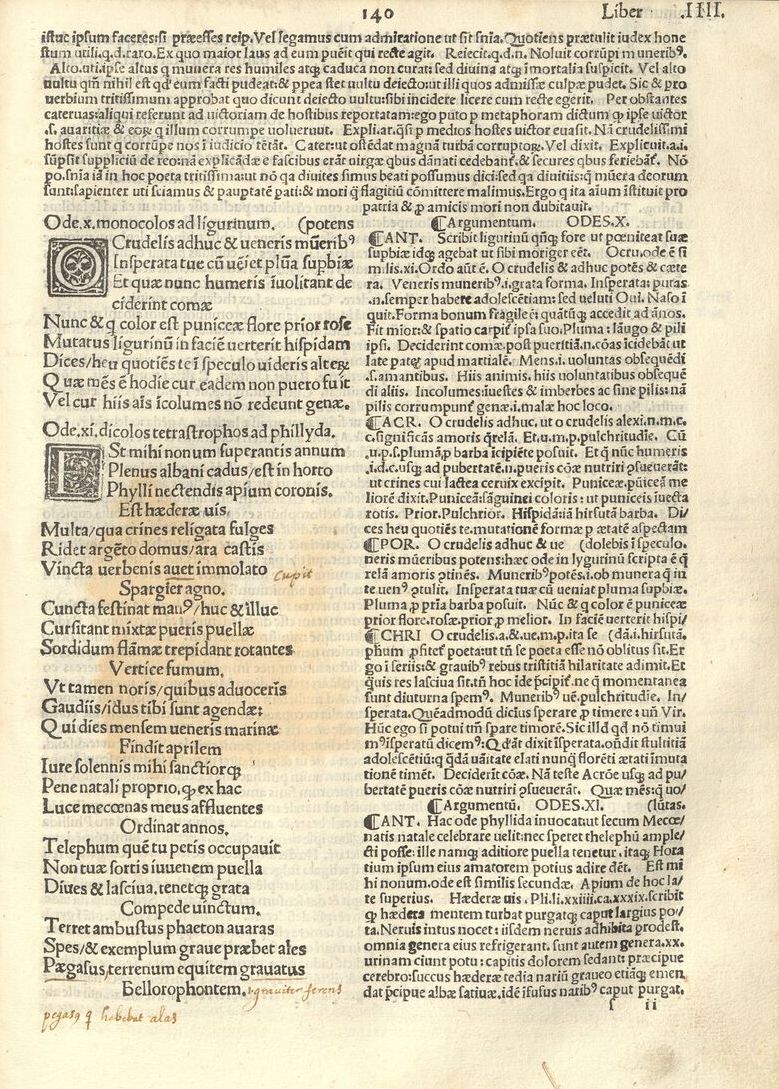 140 Liber .IIII.
istuc ipsum faceres:si præesses reip. Vel legamus cum admiratione ut sit snĩa. Quotiens prætulit iudex hone
stum utili.q.d.raro. Ex quo maior laus ad eum puẽit qui recte agit. Reiecit.q.d.n. Noluit corrũpi muneribꝰ.
Alto.uti.ipse altus q munera res humiles atqꝫ caduca non curat: sed diuina atqꝫ ĩmortalia suspicit. Vel alto
uultu qm̃ nihil est qd̓ eum facti pudeat:& ppea stet uultu deiecto:ut illi quos admissæ culpæ pudet. Sic & pro
uerbium tritissimum approbat quo dicunt deiecto uultu:sibi incidere licere cum recte egerit. Per obstantes
cateruas:aliqui referunt ad uictoriam de hostibus reportatam:ego puto p metaphoram dictum ꝙ ipse uictor
hostes sunt q corrũpe nos ĩ iudicio tẽtãt. Cater:ut ostẽdat magnã turbã corruptoꝝ. Vel dixit. Explicuit.a.i.
sunt:sapienter uti sciamus & paupertatẽ pati:& mori q̃ flagitiũ cõmittere malimus. Ergo q ita aĩum ĩstituit pro
patria & ꝓ amicis mori non dubitauit.
Ode.x.monocolos ad ligurinum. (potens
O Crudelis adhuc & ueneris mũeribꝰ
Insperata tue cũ uẽiet plũa supbiæ
Et quæ nunc humeris ĩuolitant de
ciderint comæ
Nunc & q color est puniceæ flore prior rose
Mutatus ligurinũ in faciẽ uerterit hispidam
Dices/heu quotiẽs te ĩ speculo uideris alteꝝ
Quæ mẽs ẽ hodie cur eadem non puero fuit
Vel cur hiis aĩs ĩcolumes nõ redeunt genæ.
Ode.xi.dicolos tetrastrophos ad phillyda.
ESt mihi nonum superantis annum
Plenus albani cadus/est in horto
Phylli nectendis apium coronis.
Est hæderæ uis,
Multa/qua crines religata fulges
Ridet argẽto domus/ara castis
Vincta uerbenis auet immolato cupit
Spargier agno.
Cuncta festinat manꝰ/huc & illuc
Cursitant mixtæ pueris puellæ
Sordidum flãmæ trepidant rotantes
Vertice fumum.
Vt tamen noris/quibus aduoceris
Gaudiis/idus tibi sunt agendæ:
Qui dies mensem ueneris marinæ
Findit aprilem
Iure solennis mihi sanctiorqꝫ
Pene natali proprio, ꝙ ex hac
Luce mecœnas meus affluentes
Ordinat annos.
Telephum quẽ tu petis occupauit
Non tuæ sortis iuuenem puella
Diues & lasciua, tenetqꝫ grata
Compede uinctum.
Terret ambustus phaeton auaras
Spes/& exemplum graue præbet ales
Pægasus,terrenum equitem grauatus
Bellorophontem. i. grauiter ferens
pegasꝰ q habebat alas
¶Argumentum. ODES.X.
¶ANT. Scribit ligurinũ qñqꝫ fore ut pœniteat suæ
supbiæ idqꝫ agebat ut sibi moriger eẽt. Ocru.ode ẽ sĩ
m̃lis.xi.Ordo aũt ẽ. O crudelis & adhuc potẽs & cæte
ra. Veneris muneribꝰ.i.grata forma. Insperata: putas
.n.semper habere adolescẽtiam: sed ueluti Oui. Naso ĩ
quit. Forma bonum fragile ẽ: quãtũqꝫ accedit ad ãnos.
Fit mior:& spatio carpit̃ ipsa suo. Pluma: lãugo & pili
ipsi. Deciderint comæ.post puertiã.n.cõas ĩcidebãt ut
late patꝫ apud martialẽ. Mens.i. uoluntas obsequẽdi
.s.amantibus. Hiis animis. hiis uoluntatibus obsequẽ
di aliis. Incolumes:iuestes & imberbes ac sine pilis: nã
pilis corrumpunt̃ genæ.i.malæ hoc loco.
¶ACR. O crudelis adhuc. ut o crudelis alexi.n.m.c.
c.significãs amoris q̃relã. Et.u.m.p.pulchritudie. Cũ
.u.p.s.plumã,p barba ĩcipiẽte posuit. Et q̃ nũc humeris
.i.d.c.usqꝫ ad pubertatẽ.n.pueris cõæ nutriri ꝯsueuerãt:
ut crines cui lactea ceruix excipit. Puniceæ.pũiceã me
liorẽ dixit. Puniceã:sãguinei coloris: ut puniceis iuecta
rotis. Prior.Pulchrior. Hispidã:iã hirsutã barba. Di/
ces heu quotiẽs te.mutationẽ formæ p ætatẽ aspectam
¶POR. O crudelis adhuc & ue (dolebis ĩ speculo.
neris mũeribus potens:hæc ode in lygurinũ scripta ẽ q̃
relã amoris ꝯtinẽs. Muneribꝰ potẽs.i.ob munera q̃ in
te uenꝰ ꝯtulit. Insperata tuæ cũ ueniat pluma supbiæ.
Pluma,ꝓ pria barba posuit. Nũc & q color ẽ puniceæ
prior flore.rosæ.prior,ꝓ melior. In faciẽ uerterit hispi/
¶CHRI O crudelis.a.&.ue.m.p.ita se (dã.i.hirsutã.
go ĩ seriis:& grauibꝰ rebus tristitiã hilaritate adimit. Et
quis res lasciua sit.tñ hoc ide p̃cipit̃.ne q momentanea
sunt diuturna spemꝰ. Muneribꝰ uẽ.pulchritudie. In/
sperata.Quẽadmodũ diciũs sperare ꝓ timere: uñ Vir.
Hũc ego si potui tm̃ spare timorẽ. Sic illd qd nõ timui
mꝰ ĩsperatũ dicemꝰ:Q d̓ãt dixit ĩsperata.oñdit stultitiã
adolescẽtiũ:q q̃dã uãitate elati nunq̃ florẽti ætati ĩmuta
tionẽ timẽt. Deciderĩt cõæ. Nã teste Acrõe usqꝫ ad pu/
bertatẽ pueris cõæ nutriri ꝯsueuerãt. Quæ mẽs: q uo/
¶Argumentũ. ODES.XI. (lũtas.
¶ANT. Hac ode phyllida inuocat:ut secum Mecœ/
natis natale celebrare uelit:nec speret thelephũ ample/
cti posse: ille namqꝫ aditiore puella tenetur. itaqꝫ Hora
tium ipsum eius amatorem potius adire dẽt. Est mi
hi nonum.ode est similis secundæ. Apium de hoc la/
te superius. Hæderæ uis. Pli.li.xxiiii.ca.xxxix.scribit
ꝙ hædera mentem turbat purgatqꝫ caput largius po/
ta. Neruis intus nocet: iisdem neruis adhibita prodest.
omnia genera eius refrigerant. sunt autem genera.xx.
urinam ciunt potu: capitis dolorem sedant: præcipue
cerebro:succus hæderæ tedia nariũ graueo etiãqꝫ emen
dat p̃cipue albæ satiuæ.idẽ ĩfusus naribꝰ caput purgat.
ſ ii